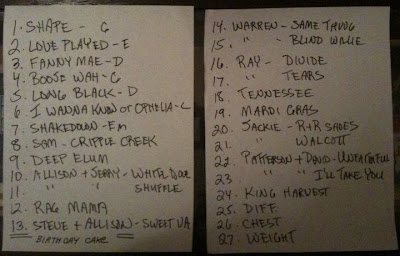 1. SHAPE - G
2. LOVE PLAYED - E
3. FANNY MAE - D
4. BOOSE WAH - G
5. LONG BLACK - D
6. I WANNA KNOW OT OPHELIA - C
7. SHAKEDOWN - Em
8. SAM - CRIPPLE CREEK
9. DEEP ELUM
10. ALLISON + JERRY - WHITE DOVE
11. " " SHUFFLE
12. RAG MAMA
13. STEVE + ALLISON - SWEET VA
BIRTHDAY CAKE
14. WARREN - SAME THING
15. " " BLIND WILLIE
16. RAY - DIVIDE
17. " TEARS
18. TENNESSEE
19. MARDI GRAS
20. JACKIE - R+R SHOES
21. " WALCOTT
22. PATTERSON + DAVID - UNFAITHFUL
23. " " I'LL TAKE YOU
24. KING HARVEST
25. DIFF
26. CHEST
27. WEIGHT